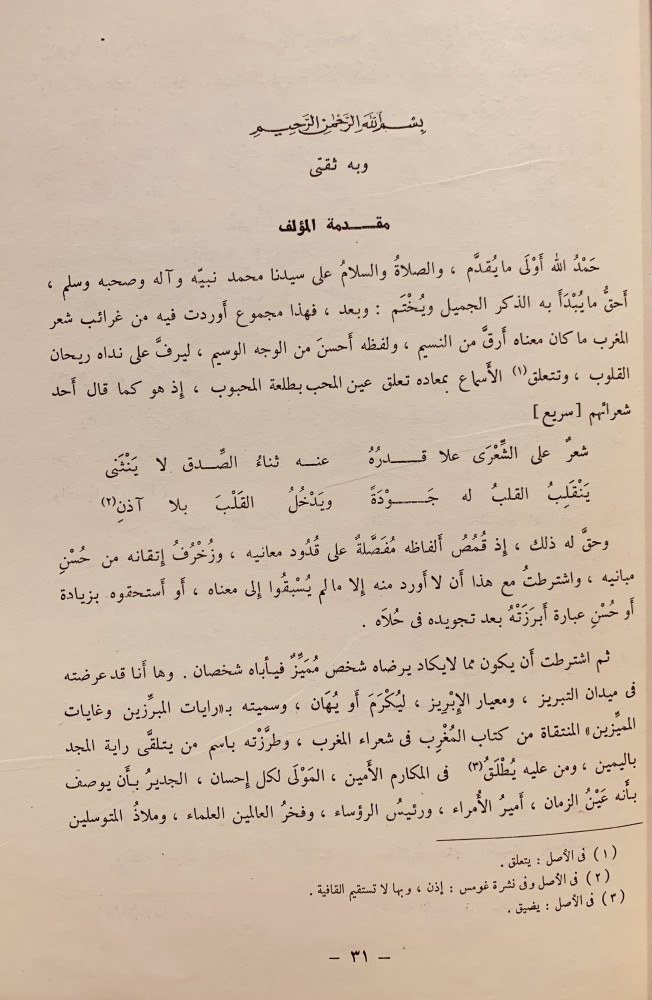 بسم الله الرحمن الرحيم
وبه ثقتى
مقدمة المؤلف
حَمْدُ الله أَوْلَى ما يُقدَّم ، والصلاةُ والسلامُ على سيدنا محمد نبيّه وآله وصحبه وسلم ،
أَحقُّ ما يُبْدَأَ به الذكر الجميل ويُخْتَم : وبعد ، فهذا مجموع أوردت فيه من غرائب شعر
المغرب ما كان معناه أَرقَّ من النسيم ، ولفظه أَحسنَ من الوجه الوسيم ، ليرفَّ على نداه ريحان
القلوب ، وتتعلق(١) الأَسماع بمعاده تعلق عين المحب بطلعة المحبوب ، إِذ هو كما قال أَحد
شعرائهم [سريع]
شعرٌ على الشِّعْرَى علا قدرُهُ عنه ثناءُ الصِّدق لا يَنْثَنى
يَنْقَلِبُ القلبُ له جَوْدَةً ويَدْخُلُ القَلْبَ بلا آذنِ(٢)
وحقَّ له ذلك ، إِذ قُمُصُ أَلفاظه مُفَصَّلةٌ على قُدُود معانيه ، وزُخْرُفُ إِتقانه من حُسْنِ
مبانيه ، واشترطتُ مع هذا أَن لا أورد منه إِلا ما لم يُسْبقُوا إِلى معناه ، أَو أَستحقوه بزيادة
أَو حُسْنِ عبارة أَبرَزَتْهُ بعد تجويده فى حُلاَه .
ثم اشترطت أَن يكون مما لايكاد يرضاه شخص مُمَيِّزٌ فيأباه شخصان . وها أَنا قد عرضته
فى ميدان التبريز ، ومعيار الإِبْرِيز ، ليُكْرَمَ أَو يُهَان ، وسميته بـ«رايات المبرِّزين وغايات
المميِّزين» المنتقاة من كتاب المُغْرِب فى شعراء المغرب ، وطرَّزْته باسم من يتلقَّى راية المجد
باليمين ، ومن عليه يُطْلَقُ(٣) فى المكارم الأَمين ، المَوْلَى لكل إِحسان ، الجديرُ بأَن يوصف
بأَنه عَيْنُ الزمان ، أَميرُ الأُمراء ، ورئيسُ الرؤساء ، وفخرُ العالمين العلماء ، وملاذُ المتوسلين
(١) فى الأصل : يتعلق .
(٢) فى الأصل وفى نشرة غومس : إذن ، وبها لا تستقيم القافية .
(٣) فى الأصل : يضيق .
– ٣١ –